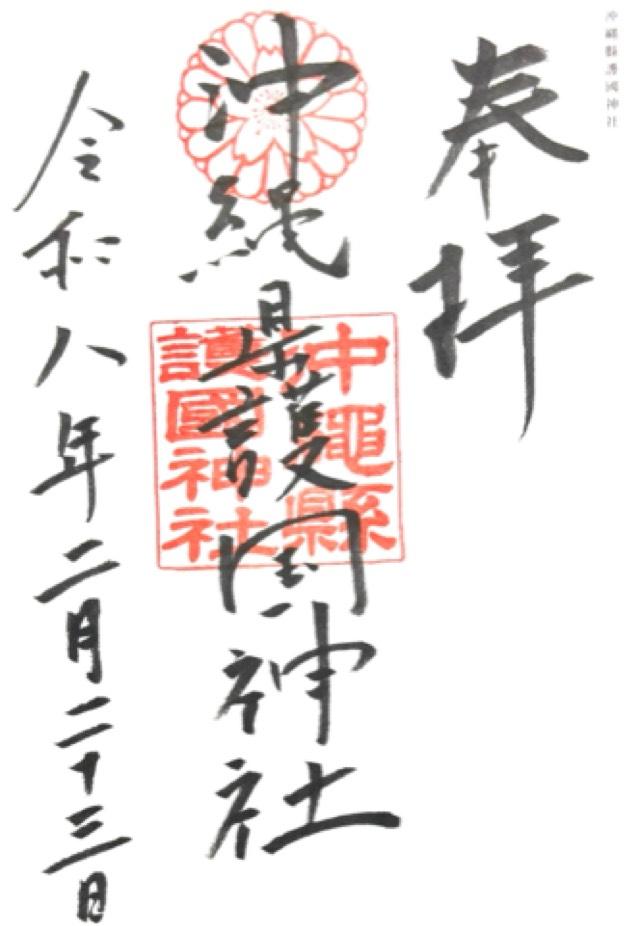 沖縄縣護國神社
奉拝
沖縄県護国神社
沖繩縣
護國神社
令和八年二月二十三日